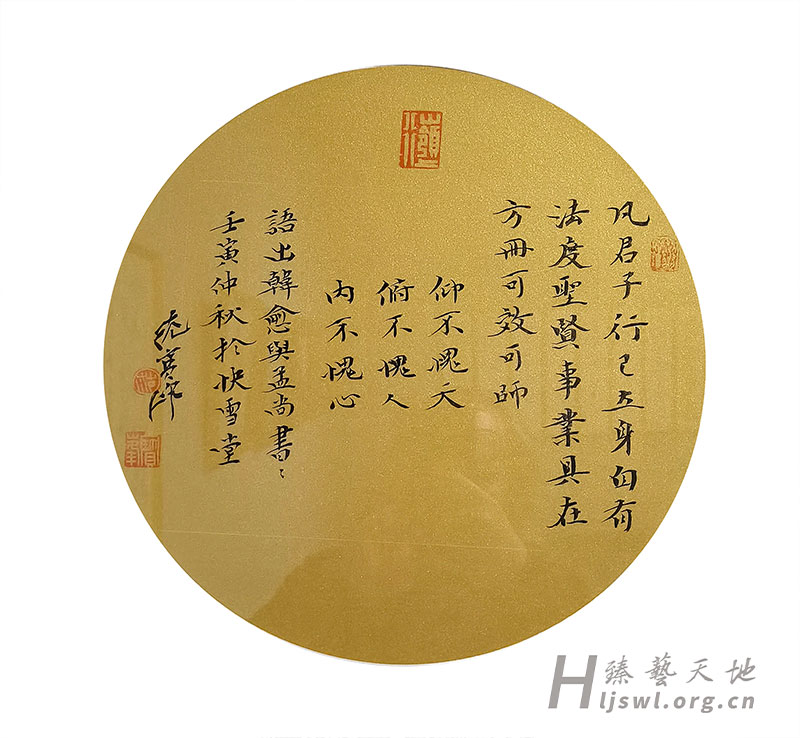 凡君子行己立身自有
法度聖賢事業具在
方冊可效可師
仰不愧天
俯不愧人
内不愧心
語出韓愈與孟尚書〻
壬寅仲秋於快雪堂
臻藝天地
Hljswl.org.cn